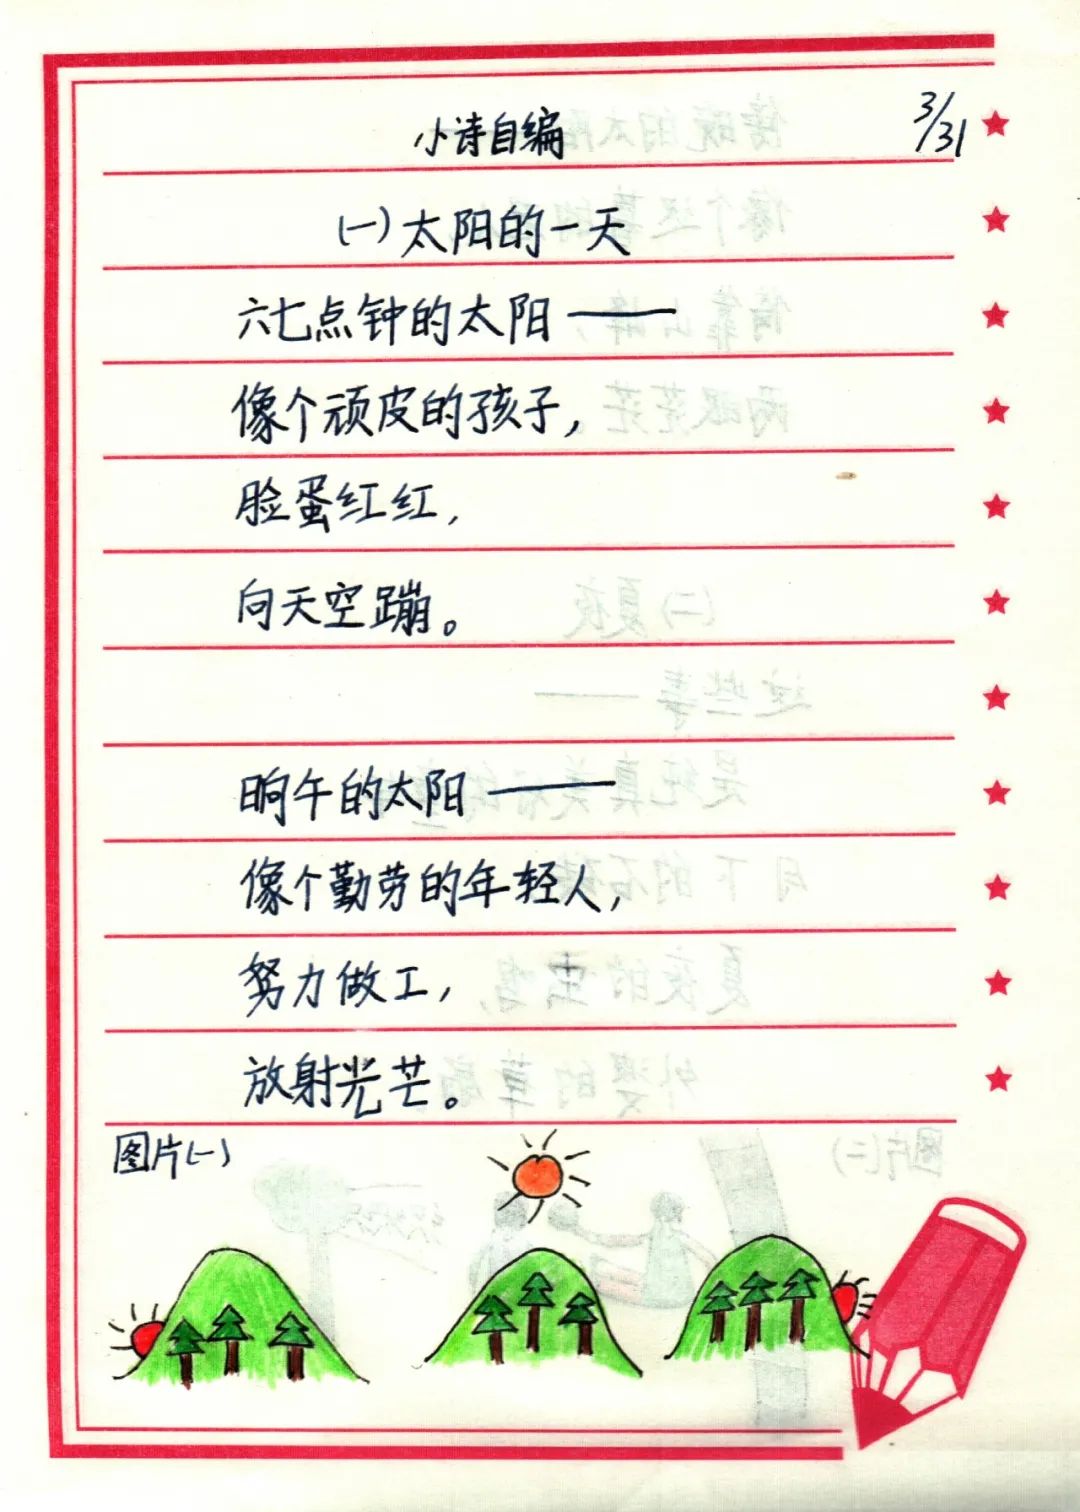 小诗自编
3/31
(一)太阳的一天
六七点钟的太阳——
像个顽皮的孩子，
脸蛋红红，
向天空蹦。
晌午的太阳——
像个勤劳的年轻人，
努力做工，
放射光芒。
图片(一)